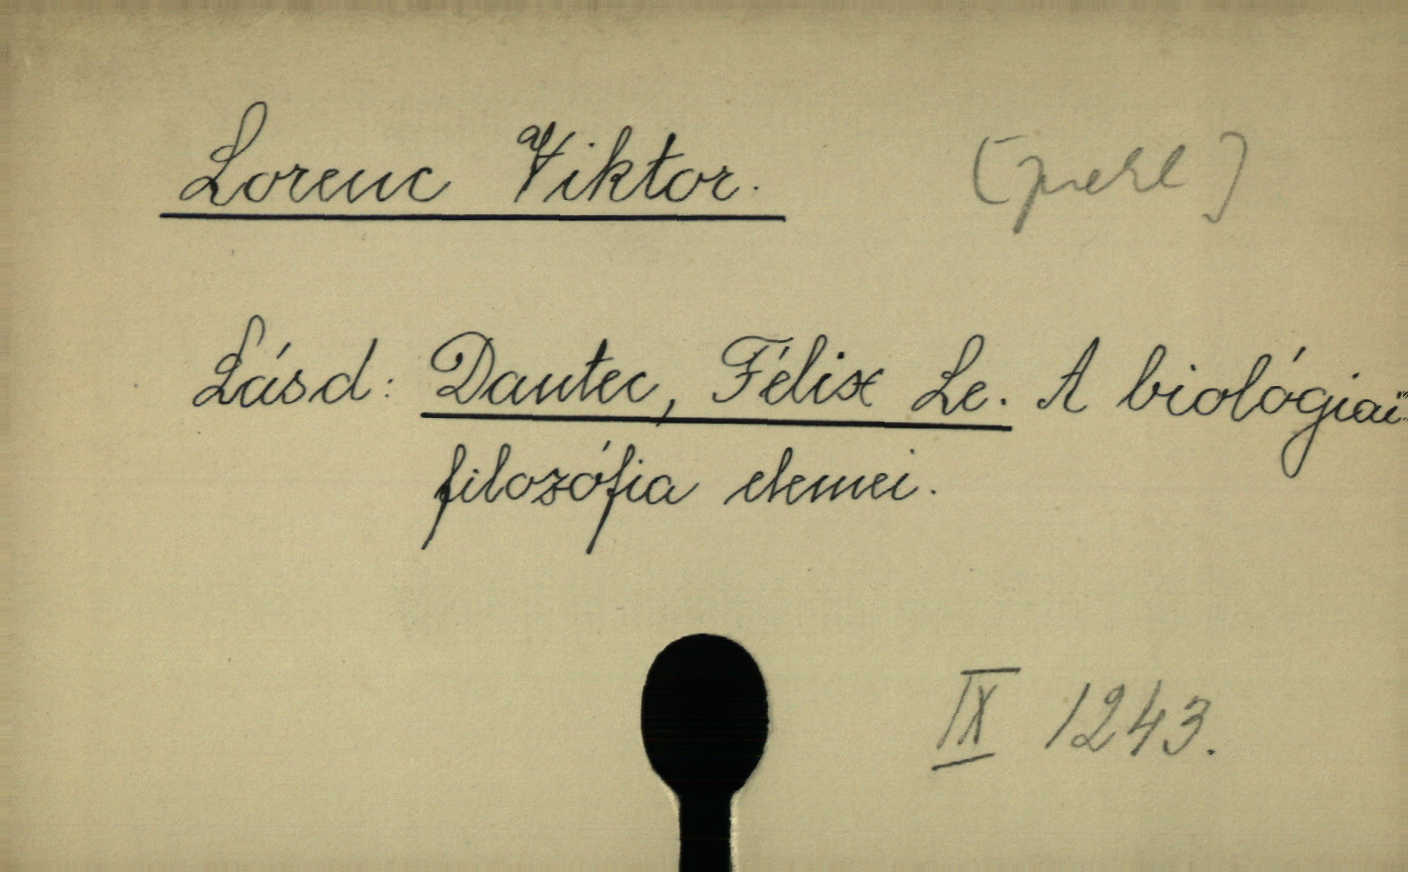 Lorenc Viktor.
Lásd: Dantec, Félix Le. A biológiai
filozófia elemei.
IX 1243.